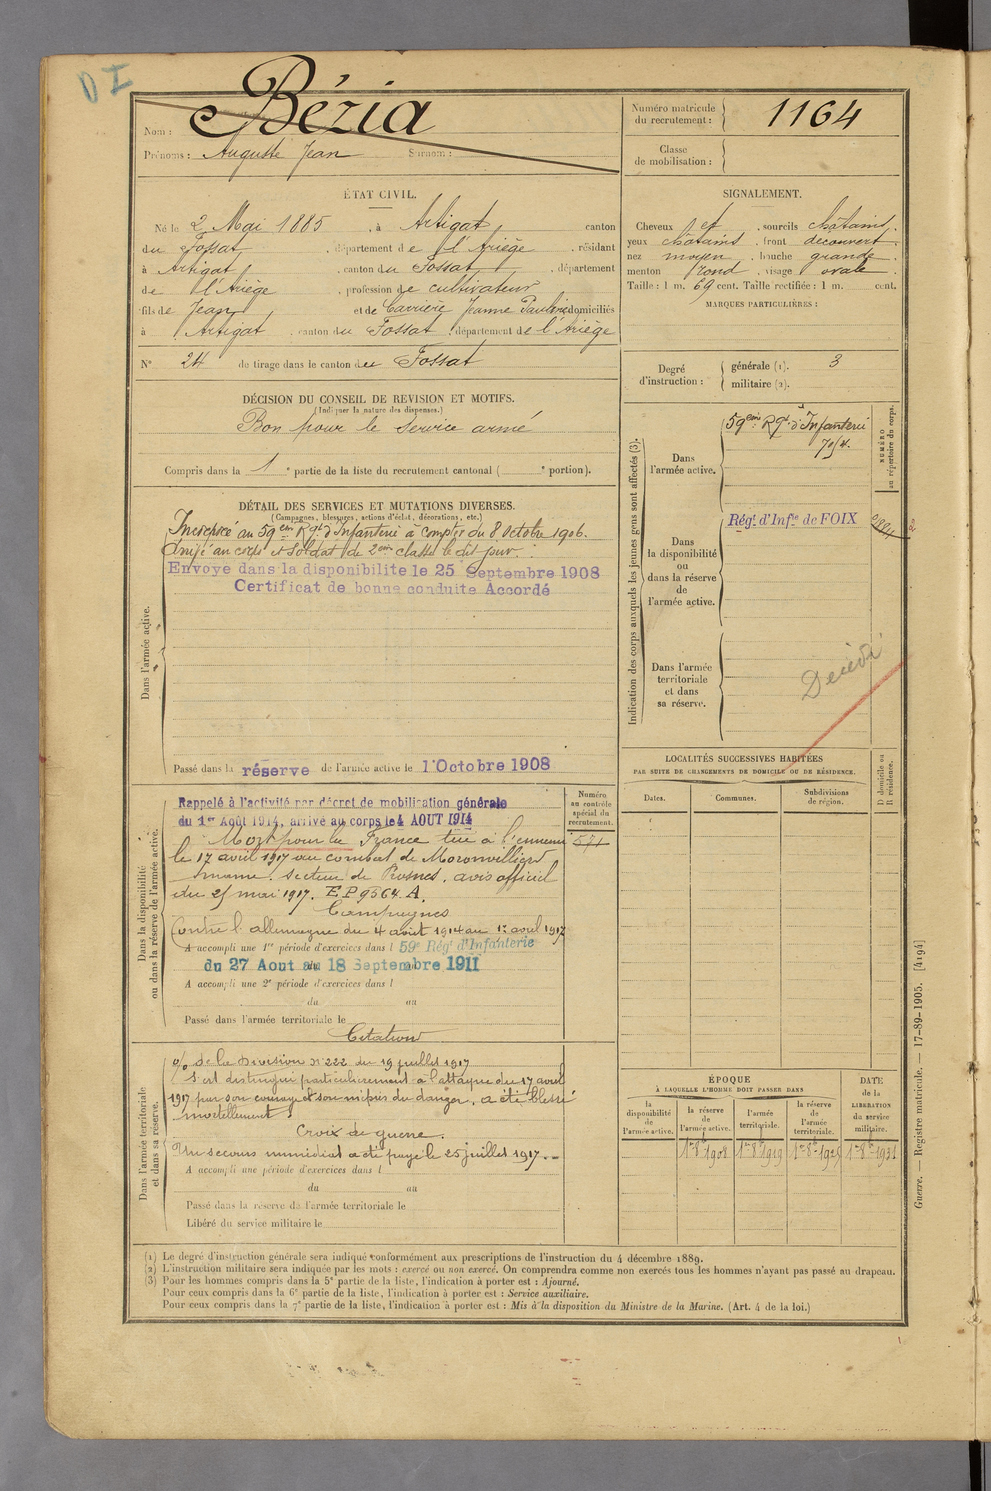 DI
Nom : Bézia
Prénoms : Auguste Jean Surnom :
Numéro matricule du recrutement : 1164
Classe de mobilisation :
ÉTAT CIVIL.
Né le 2 Mai 1885, à Artigat, canton
du Fossat, département de l'Ariège, résidant
à Artigat, canton du Fossat, département
de l'Ariège, profession de cultivateur
fils de Jean et de Carrière Jeanne Pauline, domiciliés
à Artigat, canton du Fossat, département de l'Ariège
N° 24 de tirage dans le canton du Fossat
SIGNALEMENT.
Cheveux et sourcils châtains,
yeux châtains, front découvert,
nez moyen, bouche grande,
menton rond, visage ovale
Taille : 1 m. 69 cent. Taille rectifiée : 1 m. cent.
MARQUES PARTICULIÈRES :
Degré d'instruction : générale (1). 3
militaire (2).
DÉCISION DU CONSEIL DE REVISION ET MOTIFS.
(Indiquer la nature des dispenses.)
Bon pour le service armé
Compris dans la 1e partie de la liste du recrutement cantonal ( e portion).
DÉTAIL DES SERVICES ET MUTATIONS DIVERSES.
(Campagnes, blessures, actions d'éclat, décorations, etc.)
Dans l'armée active.
Incorporé au 59em Rgt d'Infanterie à compter du 8 octobre 1906.
Arrivé au corps et soldat de 2em classe le dit jour.
Envoyé dans la disponibilite le 25 Septembre 1908
Certificat de bonne conduite Accordé
Passé dans la réserve de l'armée active le 1 Octobre 1908
Indication des corps auxquels les jeunes gens sont affectés (3).
NUMÉRO au répertoire du corps.
Dans l'armée active.
59em Rgt d'Infanterie
Dans la disponibilité ou dans la réserve de l'armée active.
Régt d'Infie de FOIX
Dans l'armée territoriale et dans sa réserve.
Décédé
LOCALITÉS SUCCESSIVES HABITÉES
PAR SUITE DE CHANGEMENTS DE DOMICILE OU DE RÉSIDENCE.
Dates. Communes. Subdivisions de région. D domicile ou R résidence.
Dans la disponibilité ou dans la réserve de l'armée active.
Numéro au contrôle spécial du recrutement.
581
Rappelé à l'activité par décret de mobilisation générale
du 1er Août 1914, arrivé au corps le 4 AOUT 1914
Mort pour la France tué à l'ennemi
le 17 avril 1917 au combat de Moronvilliers
marne. Secteur de Prosnes, avis officiel
du 25 mai 1917. EP 9564. A.
Campagnes
Contre l'allemagne du 4 août 1914 au 17 avril 1917
A accompli une 1re période d'exercices dans l 59e Régt d'Infanterie
du 27 Aout au 18 Septembre 1911
A accompli une 2e période d'exercices dans l
du au
Passé dans l'armée territoriale le
Citation
Dans l'armée territoriale et dans sa réserve.
o/o de la Division N° 222 du 19 juillet 1917
S'est distingué particulièrement à l'attaque du 17 avril
1917 par son courage et son mépris du danger, a été blessé
mortellement.
Croix de guerre.
Un secours immédiat a été payé le 25 juillet 1917.
A accompli une période d'exercices dans l
du au
Passé dans la réserve de l'armée territoriale le
Libéré du service militaire le
ÉPOQUE
À LAQUELLE L'HOMME DOIT PASSER DANS
la disponibilité de l'armée active.
la réserve de l'armée active.
l'armée territoriale.
la réserve de l'armée territoriale.
DATE de la LIBÉRATION du service militaire.
1er 8bre 1908 1er 8bre 1919 1er 8bre 1925 1er 8bre 1931
Guerre. — Registre matricule. — 17-89-1905. [4194]
(1) Le degré d'instruction générale sera indiqué conformément aux prescriptions de l'instruction du 4 décembre 1889.
(2) L'instruction militaire sera indiquée par les mots : exercé ou non exercé. On comprendra comme non exercés tous les hommes n'ayant pas passé au drapeau.
(3) Pour les hommes compris dans la 5e partie de la liste, l'indication à porter est : Ajourné.
Pour ceux compris dans la 6e partie de la liste, l'indication à porter est : Service auxiliaire.
Pour ceux compris dans la 7e partie de la liste, l'indication à porter est : Mis à la disposition du Ministre de la Marine. (Art. 4 de la loi.)